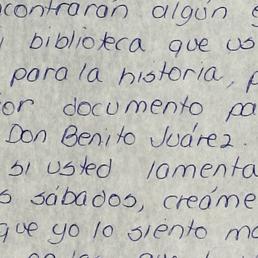 contrarán algún
biblioteca que us
para la historia, p
or documento pa
Don Benito Juárez.
si usted lamenta
s sábados, créame
que yo lo siento m